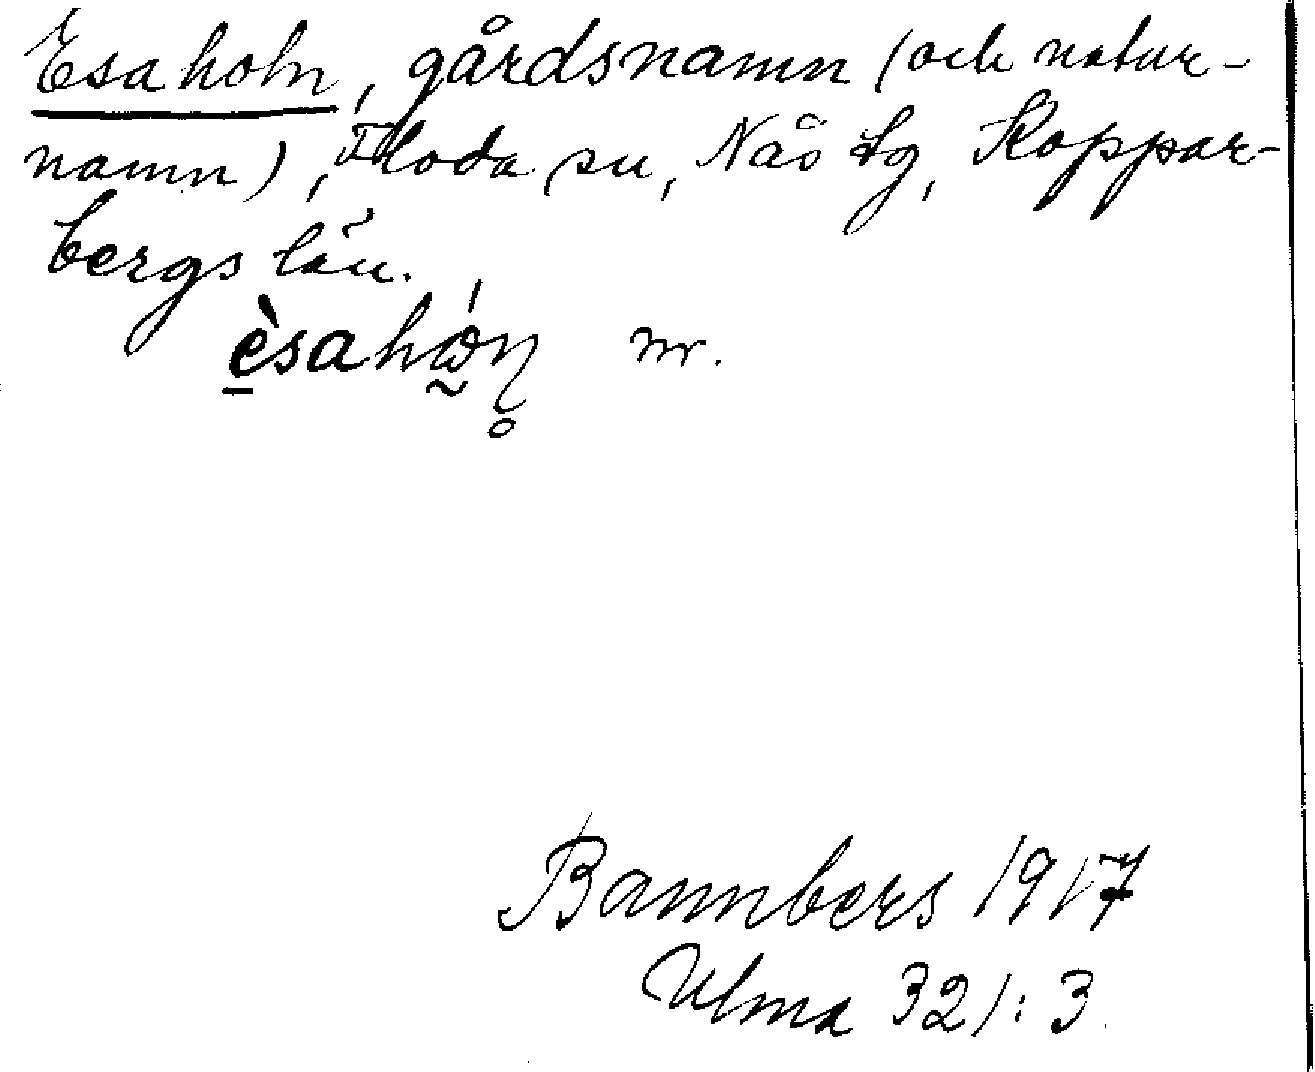 Esaholn, gårdsnamn (och natur-
namn), Floda sn, Nås tg, Koppar-
bergs län.
èsahó̰n̥ nr.
Bannbers 1917
Ulma 321:3